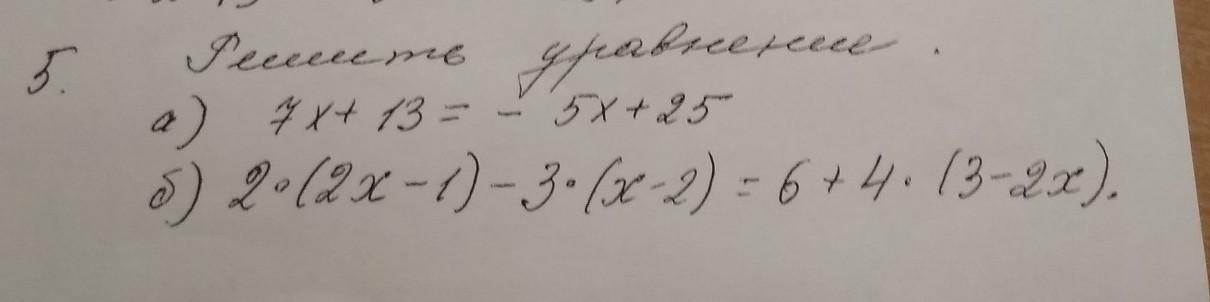 5. Решить уравнение.
а) 7x + 13 = - 5x + 25
б) 2·(2x - 1) - 3·(x - 2) = 6 + 4·(3 - 2x).